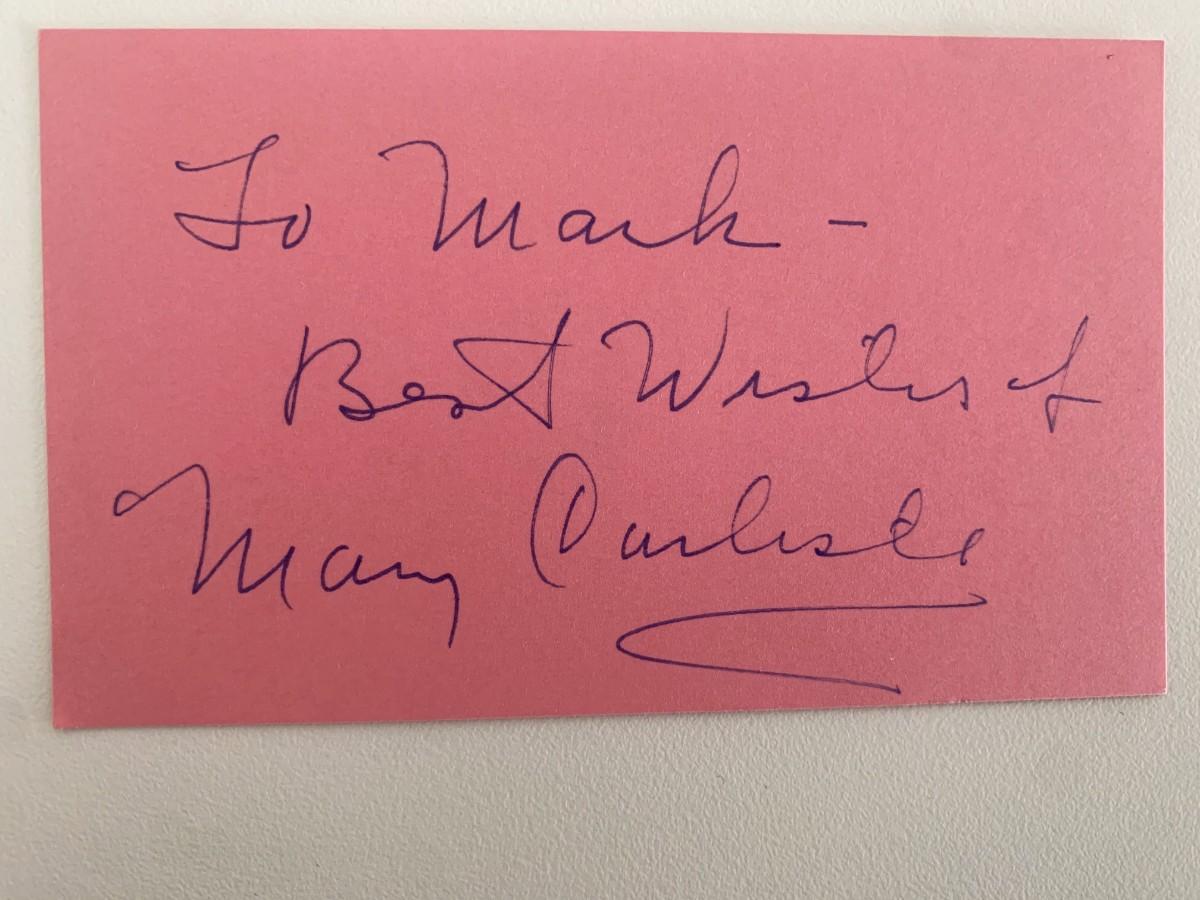 To Mark -
Best Wishes of
Mary Carlisle